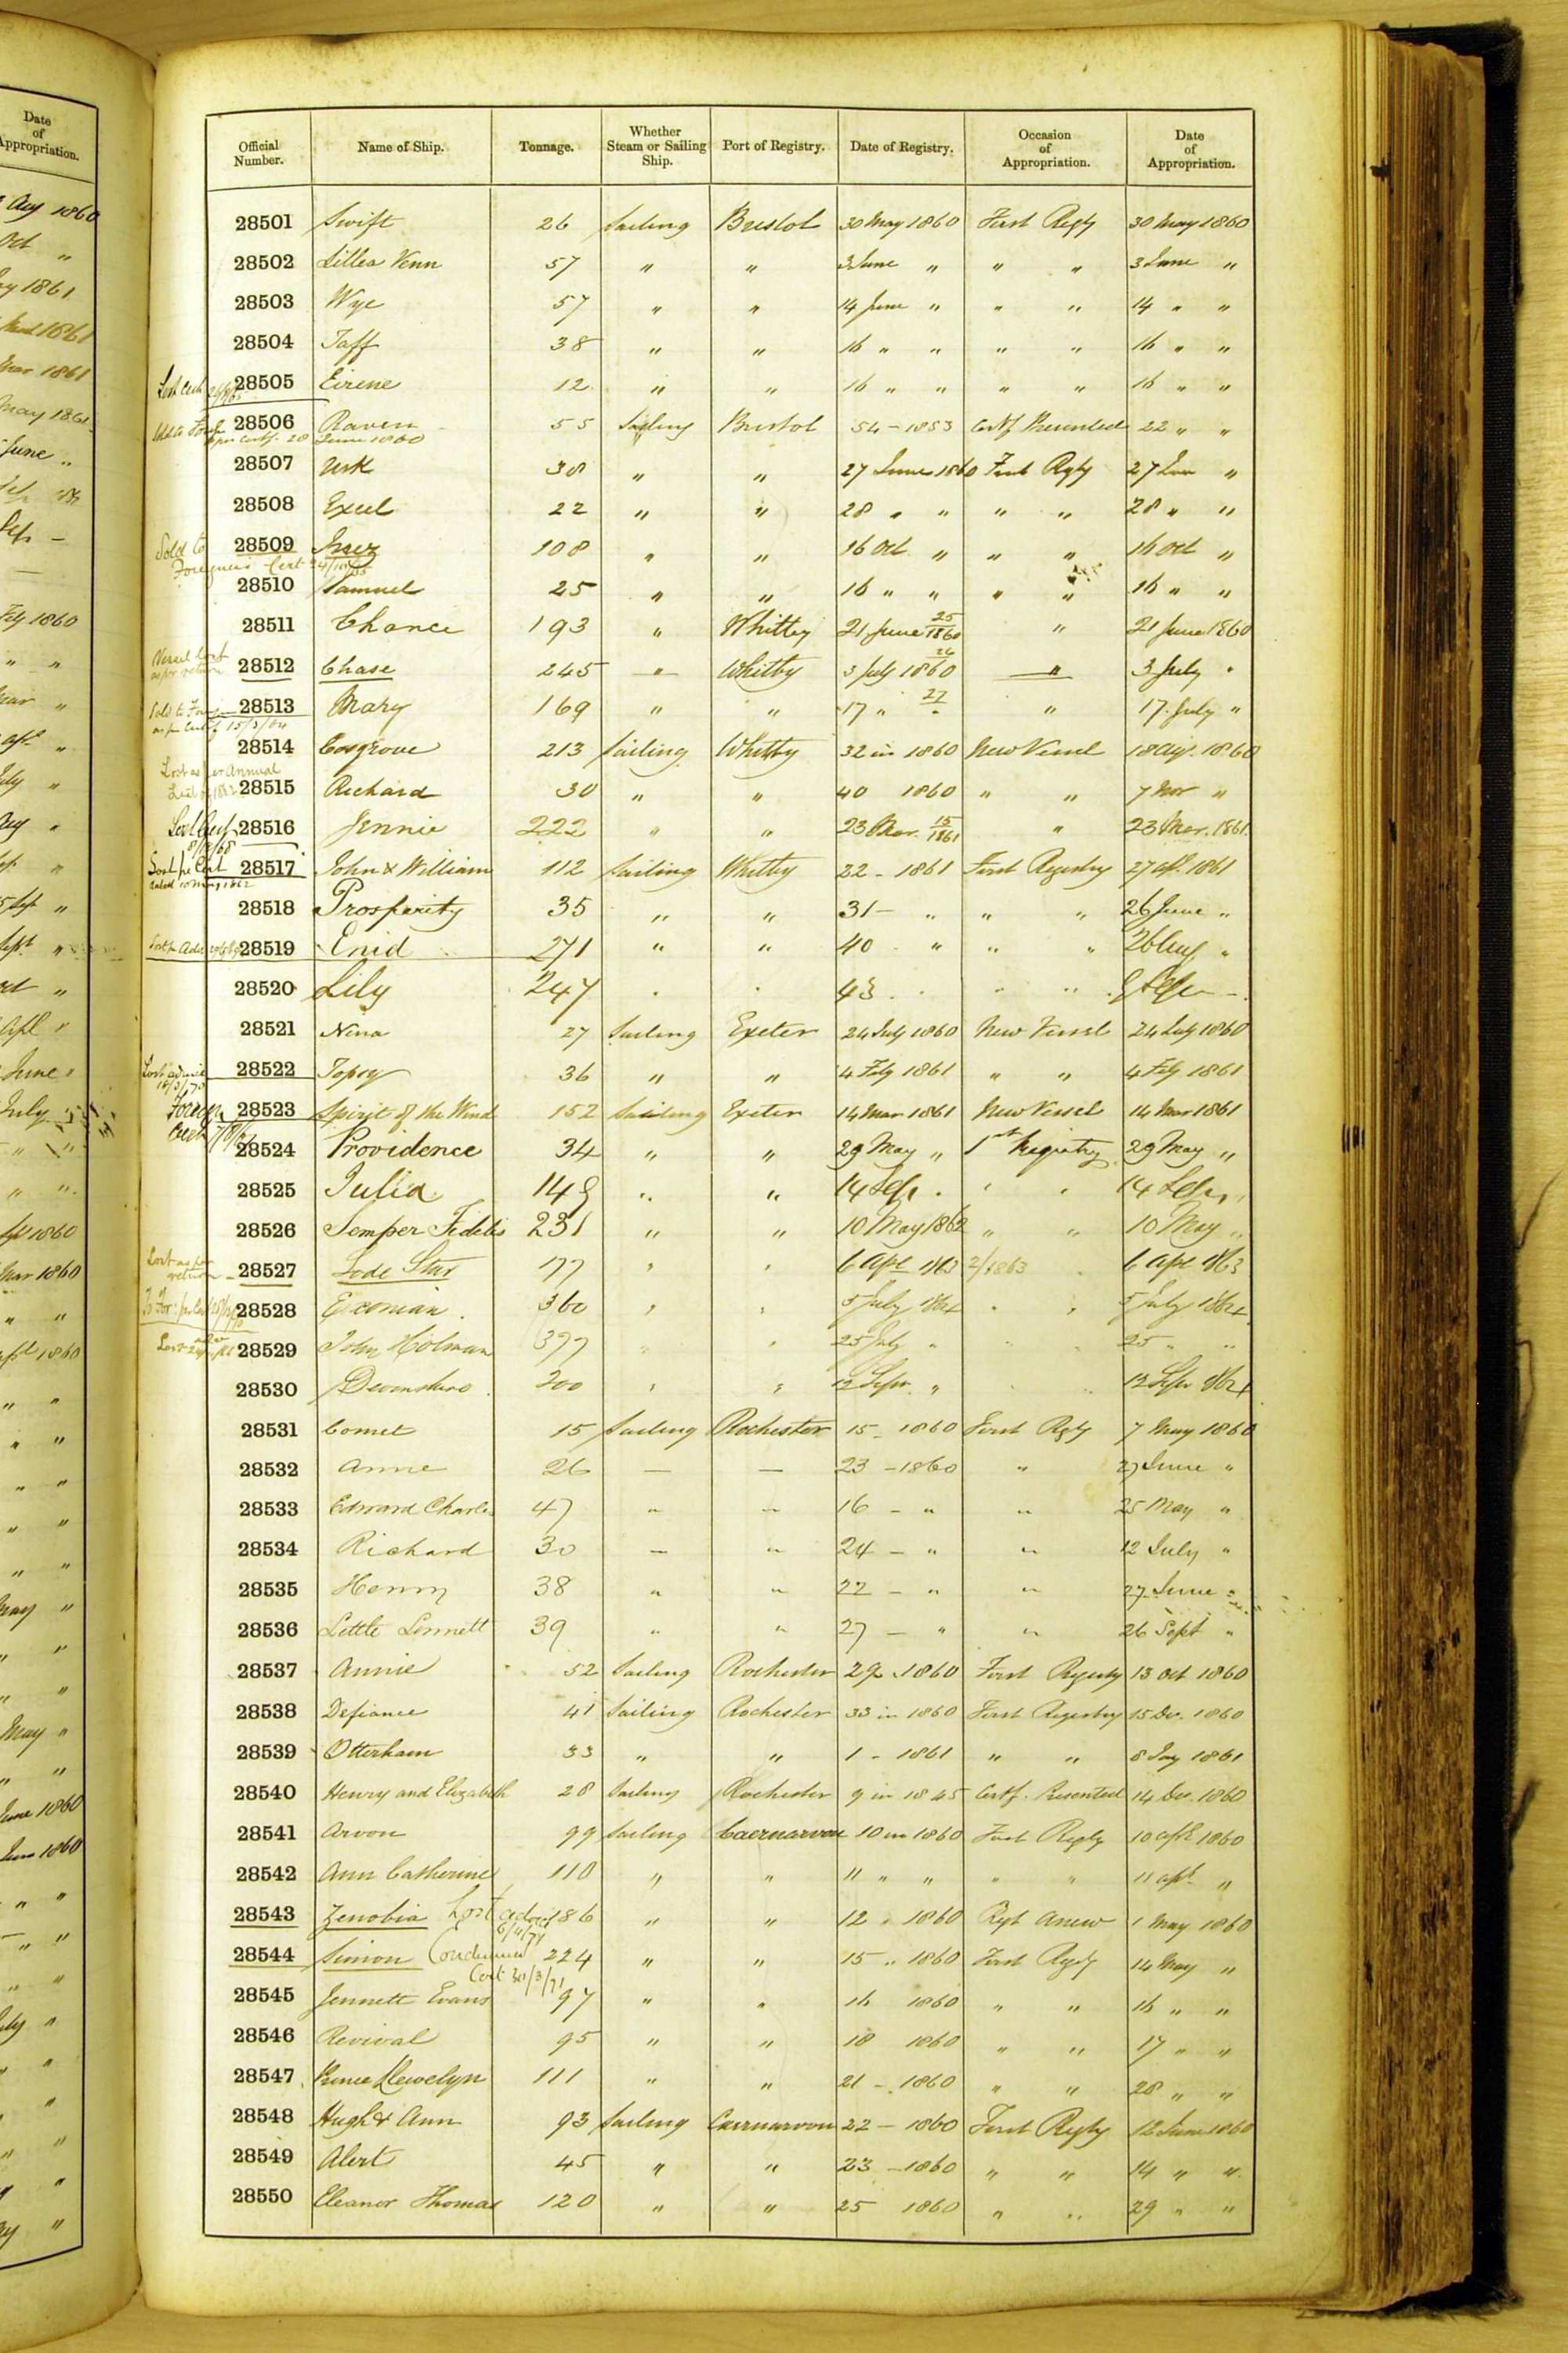 Date
of
Appropriation.
Aug 1860
Oct "
1861
1861
Mar 1861
May 1861
June "
Feby 1860
" "
Mar "
July "
Aug "
Sept "
Oct "
Apl "
June "
July "
1860
Mar 1860
" "
1860
May "
May "
June 1860
June 1860
Official Number. Name of Ship. Tonnage. Whether Steam or Sailing Ship. Port of Registry. Date of Registry. Occasion of Appropriation. Date of Appropriation.
28501 Swift 26 Sailing Bristol 30 May 1860 First Regy 30 May 1860
28502 Lillea Venn 57 " " 3 June " " " 3 June "
28503 Wye 57 " " 14 June " " " 14 " "
28504 Taff 38 " " 16 " " " " 16 " "
Lost Cert 28505 Eirene 12 " " 16 " " " " 16 " "
28506 Raven 55 Sailing Bristol 54 - 1853 Certf Presented 22 " "
per certf. 28 June 1860
28507 Usk 38 " " 27 June 1860 First Regy 27 Jun "
28508 Excel 22 " " 28 " " " " 28 " "
Sold to 28509 108 " " 16 Oct " " " 16 Oct "
Foreigners Cert
28510 Samuel 25 " " 16 " " " " 16 " "
28511 Chance 193 " Whitby 21 June 25/1860 " 21 June 1860
Vessel Lost as per return 28512 Chase 245 — Whitby 3 July 26 1860 " 3 July "
Sold to 28513 Mary 169 " " 17 " 27 " " 17 July "
as per Certf 15/3/64
28514 Cosgrove 213 Sailing Whitby 32 in 1860 New Vessel 18 Aug. 1860
Lost as per Annual
28515 Richard 30 " " 40 1860 " " 7 Nov "
28516 Jennie 222 " " 23 Mar. 15/1861 " 23 Mar. 1861
Lost per Cert 28517 John & William 112 Sailing Whitby 22 - 1861 First Registry 27 Apl. 1861
28518 Prosperity 35 " " 31 - " " " 26 June "
28519 Enid 271 " " 40 " " " 26 Aug "
28520 Lily 247 " " 43 " " "
28521 Nina 27 Sailing Exeter 24 July 1860 New Vessel 24 July 1860
Lost advice 28522 Topsy 36 " " 4 Feby 1861 " " 4 Feby 1861
Foreign 28523 Spirit of the Wind 152 Sailing Exeter 14 Mar 1861 New Vessel 14 Mar 1861
28524 Providence 34 " " 29 May " 1st Registry 29 May "
28525 Julia 149 " " 14 Sep. " " " 14 Sep. "
28526 Semper Fidelis 231 " " 10 May 1862 " " 10 May "
Lost as per return 28527 Lode Star 177 " " 6 Apl 1863 2/1863 6 Apl 1863
28528 Exonian 360 " " 5 July 1864 " " 5 July 1864
28529 John Holman 377 " " 25 July " " " 25 " "
28530 Devonshire 200 " " 12 Sepr. " " " 12 Sepr 1864
28531 Comet 15 Sailing Rochester 15 - 1860 First Regy 7 May 1860
28532 Anne 26 — — 23 - 1860 " 27 June "
28533 Edward Charles 47 " " 16 - " " 25 May "
28534 Richard 30 — " 24 - " " 12 July "
28535 Henry 38 " " 22 - " " 27 June "
28536 Little Lennett 39 " " 27 - " " 26 Sept "
28537 Annie 52 Sailing Rochester 29 - 1860 First Registy 13 Oct 1860
28538 Defiance 41 Sailing Rochester 33 in 1860 First Registry 15 De. 1860
28539 Otterham 33 " " 1 - 1861 " " 8 Jay 1861
28540 Henry and Elizabeth 28 Sailing Rochester 9 in 1845 Certf. Presented 14 Dec. 1860
28541 Arvon 99 Sailing Caernarvon 10 in 1860 First Regty 10 Apl 1860
28542 Ann Catherine 110 " " 11 " " " " 11 Apl "
28543 Zenobia Lost advice 6/4/74 186 " " 12 " 1860 Regd Anew 1 May 1860
28544 Simon Condemned Cert 30/3/71 224 " " 15 " 1860 First Regty 14 May "
28545 Jennett Evans 97 " " 16 1860 " " 16 " "
28546 Revival 95 " " 18 1860 " " 17 " "
28547 Prince Llewelyn 111 " " 21 - 1860 " " 28 " "
28548 Hugh & Ann 93 Sailing Caernarvon 22 - 1860 First Regty 12 June 1860
28549 Alert 45 " " 23 - 1860 " " 14 " "
28550 Eleanor Thomas 120 " " 25 1860 " " 29 " "